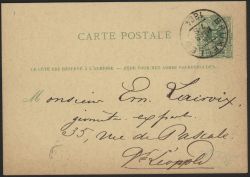 CARTE POSTALE
CE CÔTÉ EST RÉSERVÉ À L'ADRESSE. — ZIJDE VOOR HET ADRES VOORBEHOUDEN.
Monsieur Em. Lacroix,
expert
35, rue de Pascale
Qr Léopold